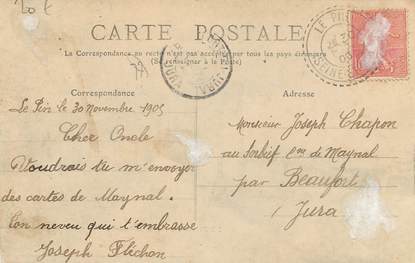 CARTE POSTALE
La Correspondance au recto n'est pas acceptée par tous les pays étrangers
(Se renseigner à la Poste)
Correspondance
Adresse
Le Pin le 30 Novembre 1905
Cher Oncle
Voudrais tu m'envoyer
des cartes de Maynal.
Ton neveu qui t'embrasse
Joseph Flichon
Monsieur Joseph Chapon
au Sorbief Cne de Maynal
par Beaufort
Jura
LE PIN
JURA